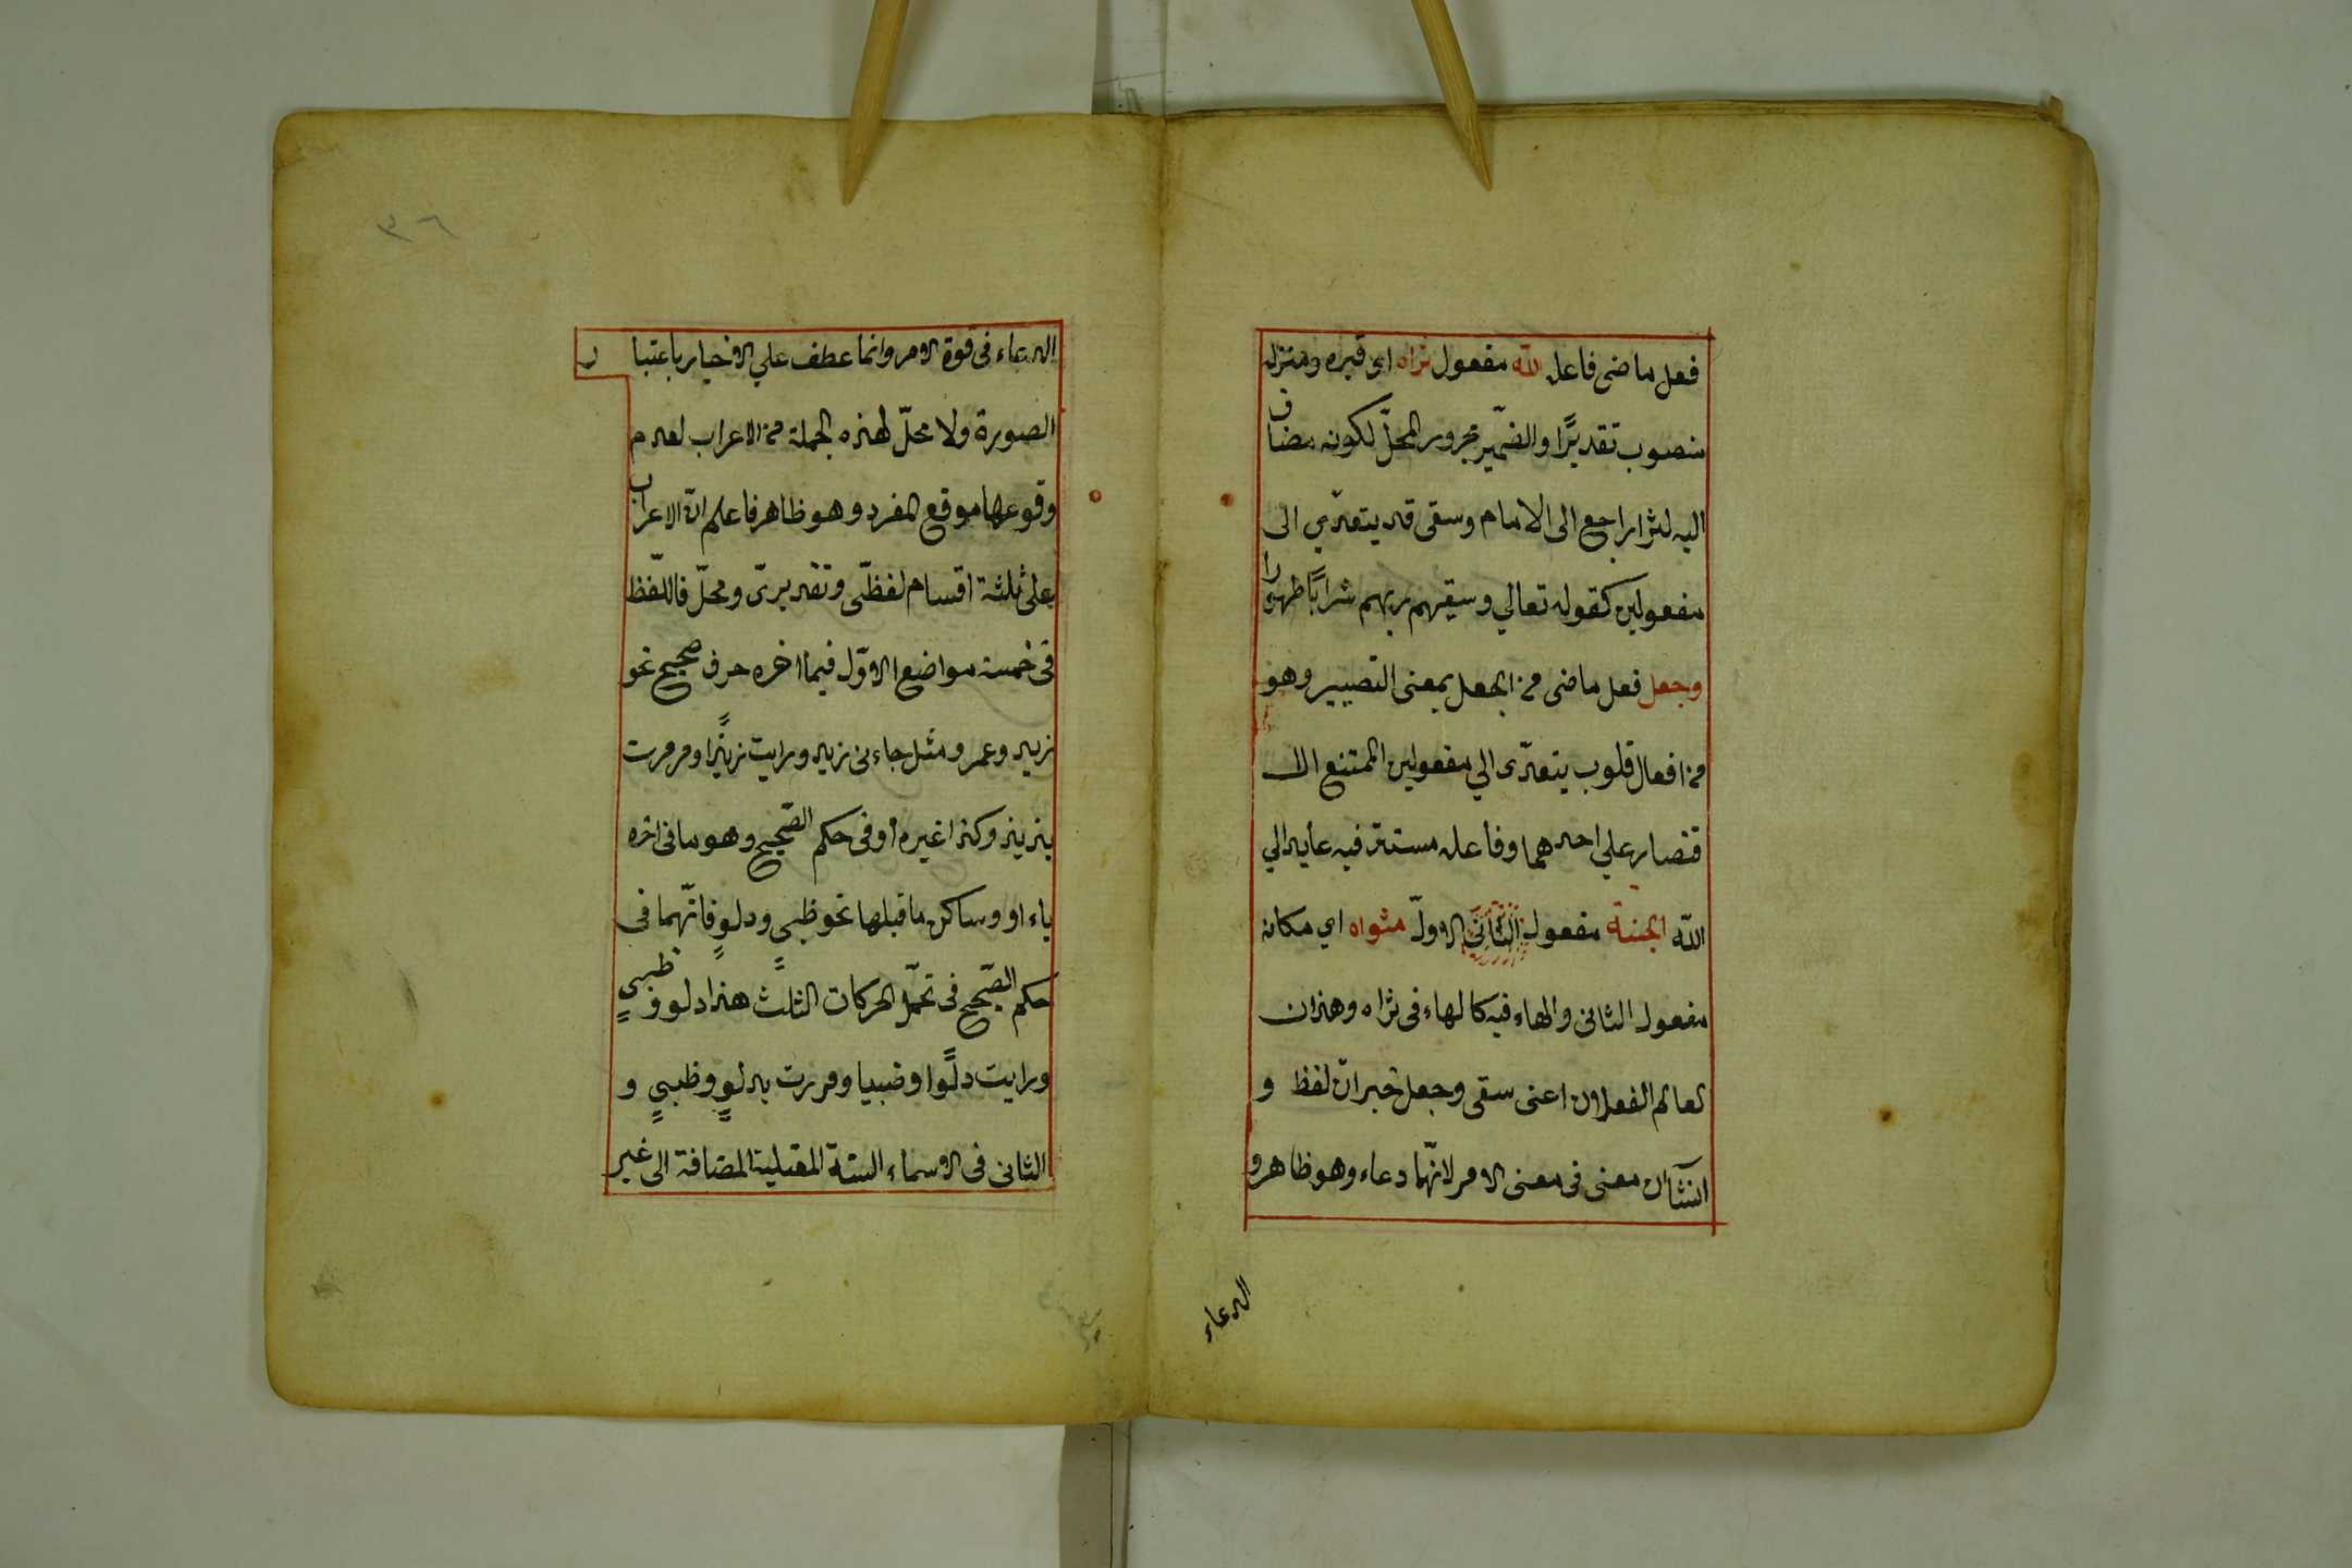 فعل ماضى فاعله الله مفعول ثراه اى قبره ومنزله
منصوب تقديرًا والضّمير مجرور المحلّ لكونه مضاف
اليه لثرا راجع الى الامام وسقى قد يتعدّي الى
مفعولين كقوله تعالي وسقيهم ربهم شرابًا طهورا
وجعل فعل ماضى من الجعل بمعنى التصيير وهو
من افعال قلوب يتعدّى الي مفعولين الممتنع الا
قتصار على احدهما وفاعله مستتر فيه عايد الي
الله الجنة مفعول الثانى الاولّ مثواه اي مكانه
مفعول الثانى والهاء فيه كالهاء فى ثراه وهذان
الفعلان اعنى سقى وجعل خبران لفظ و
انشآان معنى فى معنى الامر لانّهما دعاء وهو ظاهر و
الدعاء
٣٦
الدعاء فى قوة الامر وانما عطف علي الاخبار باعتبار
الصورة ولا محلّ لهذه الجملة من الاعراب لعدم
وقوعها موقع المفرد وهو ظاهر فاعلم انّ الاعراب
على ثلثة اقسام لفظّى وتقديرىّ ومحلّ فاللّفظ
فى خمسة مواضع الاوّل فيما اخره حرف صحيح نحو
زيد وعمرو مثل جاءنى زيد ورايت زيدًا ومررت
بزيد وكذا غيره أو فى حكم الصّحيح وهو ما فى اخره
ياء او و ساكن ما قبلها نحو ظبي ودلو فانّهما فى
حكم الصّحيح فى تحمّل الحركات الثلث هذا دلو و ظبي
ورايت دلوًا وضبيا ومررت بدلوٍ وظبيٍ و
الثانى فى الاسماء الستة المعتلية المضافة الى غير